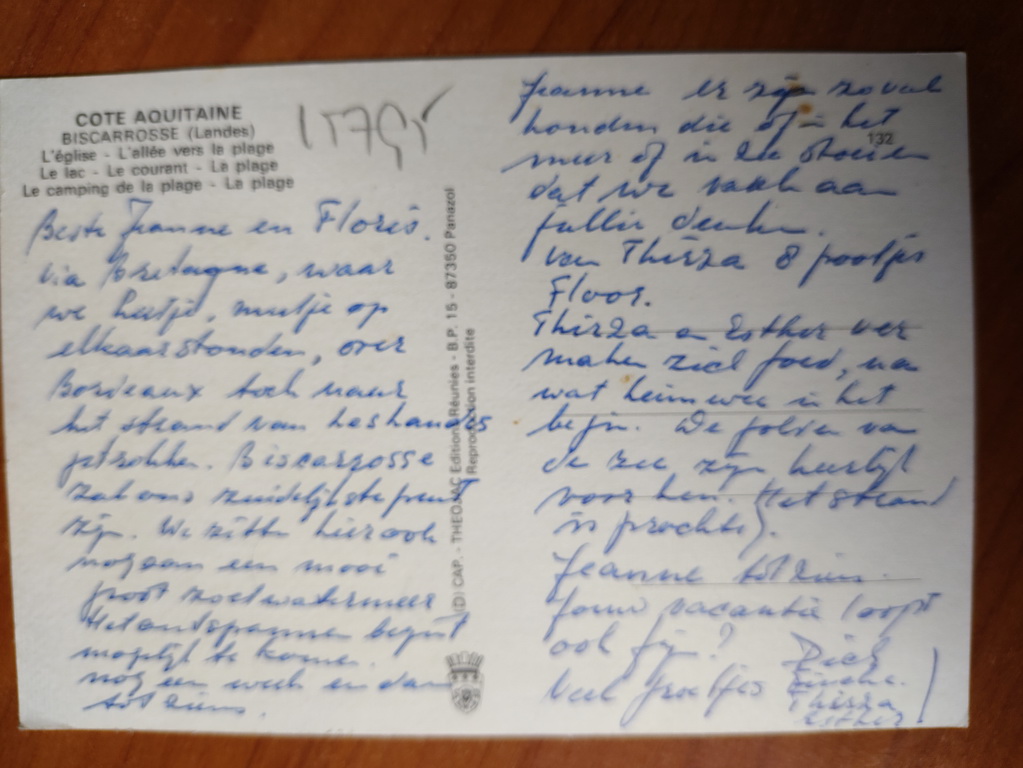 COTE AQUITAINE
BISCARROSSE (Landes)
L'église - L'allée vers le plage
Le lac - Le courant - La plage
Le camping de la plage - La plage
132
(D) CAP. - THEOJAC Editions Réunies - B.P. 15 - 87350 Panazol
Reproduction interdite
Beste Jeanne en Floris.
Via Bretagne, waar
we hutje, mutje op
elkaar stonden, over
Bordeaux toch naar
het strand van
getrokken. Biscarrosse
zal ons zuidelijkste punt
zijn. We zitten hier ook
nog aan een mooi
groot zoetwatermeer
Het ontspannen begint
mogelijk te komen.
nog een week en dan
tot ziens.
Jeanne er zijn zoveel
honden die of in het
meer of in zee stoeien
dat we vaak aan
denken.
van Thirza 8 pootjes
Floor.
Thirza en Esther ver
maken zich goed, na
wat heimwee in het
begin. De golven van
de zee zijn heerlijk
voor hen. (Het strand
is prachtig).
Jeanne tot ziens.
jouw vacantie loopt
ook fijn?
Veel groetjes Dick
Thirza
Esther